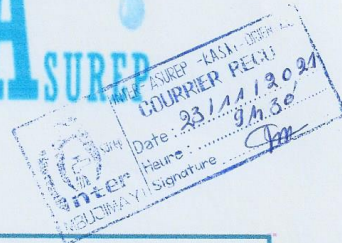 ASUREP
INTER-ASUREP-KASAI-ORIENTAL
COURRIER RECU
Date : 23/11/2021
Heure : 9h.30'
Signature
Inter
MBUJIMAYI